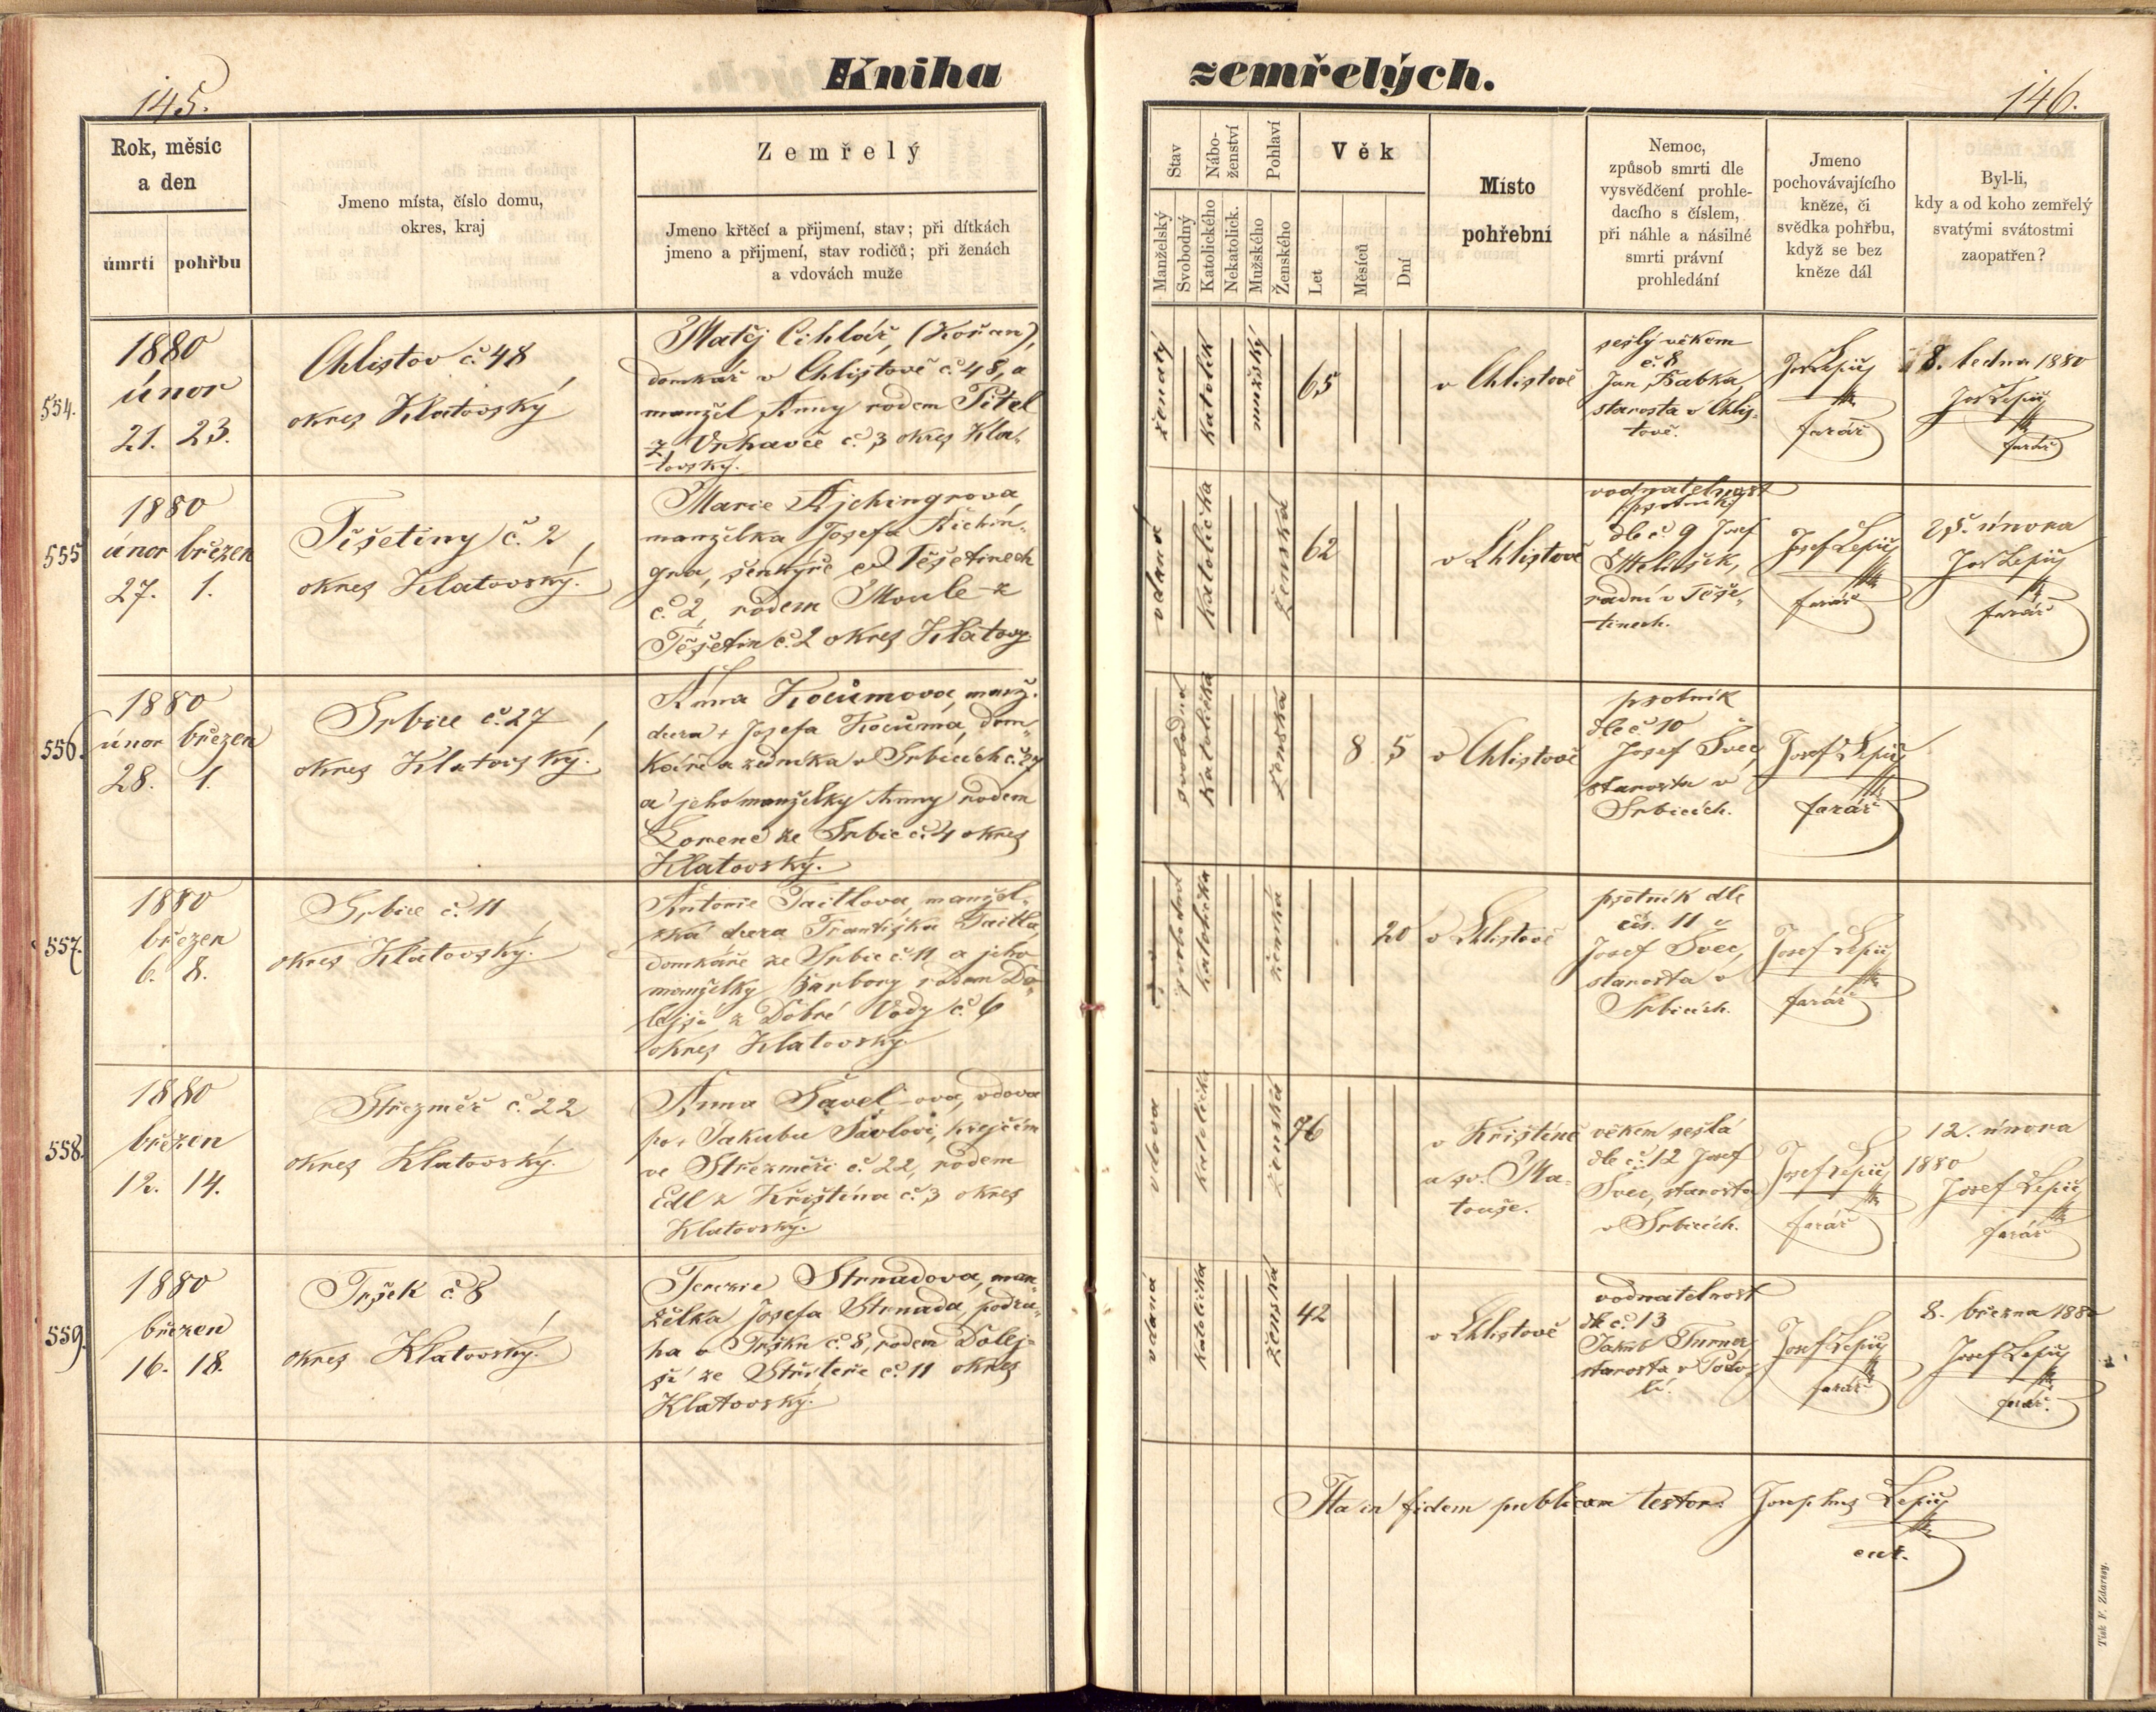 Kniha zemřelých.
145.
146.
Rok, měsíc
a den
úmrtí pohřbu
Jmeno místa, číslo domu,
okres, kraj
Zemřelý
Jmeno křtěcí a přijmení, stav; při dítkách
jmeno a přijmení, stav rodičů; při ženách
a vdovách muže
Stav
Manželský
Svobodný
Nábo-
ženství
Katolického
Nekatolick.
Pohlaví
Mužského
Ženského
Věk
Let
Měsíců
Dní
Místo
pohřební
Nemoc,
způsob smrti dle
vysvědčení prohle-
dacího s číslem,
při náhle a násilné
smrti právní
prohledání
Jmeno
pochovávajícího
kněze, či
svědka pohřbu,
když se bez
kněze dál
Byl-li,
kdy a od koho zemřelý
svatými svátostmi
zaopatřen?
554.
1880
únor
21. 23.
Chlistov č. 48
okres Klatovský
Matěj Cihlář, (Kořan),
domkář v Chlistově č. 48, a
manžel Anny rodem Pitel
z Vrhavče č. 3 okres Kla-
tovský.
ženatý
katolík
mužský
65
v Chlistově
sešlý věkem
č. 8
Jan Babka,
starosta v Chlis-
tově.
Jos Lepič
farář
8. ledna 1880
Jos Lepič
farář
555
1880
únor březen
27. 1.
Těšetiny č. 2
okres Klatovský.
Marie Ajchingrová,
manželka Josefa Aichin-
gra, šenkýře v Těšetinech
č. 2, rodem Moule z
Těšetin č. 2 okres Klatovs.
vdaná
katolička
ženská
62
v Chlistově
vodnatelnost
dle č. 9 Josef
radní v Těše-
tinech.
Josef Lepič
farář
25. února
Jos Lepič
farář
556.
1880
únor březen
28. 1.
Srbice č. 27
okres Klatovský.
Anna Kocůmova, manž.
dcera + Josefa Kocůma, dom-
káře a zedníka v Srbicích č. 27
a jeho manželky Anny rodem
Lorenc ze Srbic č. 4 okres
Klatovský.
svobodná
katolička
ženská
8 5
v Chlistově
psotník
dle č. 10
Josef Švec,
starosta v
Srbicích.
Josef Lepič
farář
557.
1880
březen
6. 8.
Srbice č. 11
okres Klatovský.
Antonie Taitlova, manžel-
ská dcera Františka Taitla,
domkáře ze Srbic č. 11 a jeho
manželky Barbory rodem Do-
lejší z Dobré Vody č. 6
okres Klatovský
svobodná
katolička
ženská
20
v Chlistově
psotník dle
čís. 11
Josef Švec,
starosta v
Srbicích.
Josef Lepič
farář
558.
1880
březen
12. 14.
Střezměř č. 22
okres Klatovský.
Anna Šavel-ova, vdova
po + Jakubu Šavlovi, krejčím
ve Střezměři č. 22, rodem
Edl z Křištína č. 3 okres
Klatovský.
vdova
katolička
ženská
76
v Křištíně
u sv. Ma-
touše.
věkem sešlá
dle č. 12 Josef
Švec, starosta
v Srbicích.
Josef Lepič
farář
12. února
1880
Josef Lepič
farář
559.
1880
březen
16. 18.
Tršek č. 8
okres Klatovský.
Terezie Strnadova, man-
želka Josefa Strnada, podru-
ha v Tršku č. 8, rodem Dolej-
ší ze Stříteře č. 11 okres
Klatovský.
vdaná
katolička
ženská
42
v Chlistově
vodnatelnost
dle č. 13
Jakub Turner,
starosta v
Josef Lepič
farář
8. března 1880
Josef Lepič
farář.
Ita in fidem publicam testor: Josephus Lepič
cur.
Tisk F. Zdarssy.